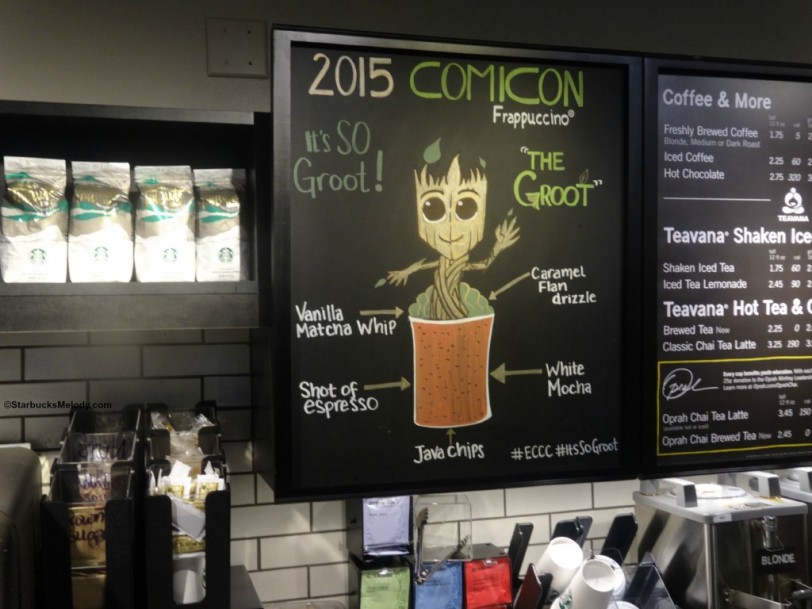 2015 COMICON
Frappuccino®
It's SO
Groot!
"THE
GROOT"
Caramel
Flan
drizzle
Vanilla
Matcha Whip
White
Mocha
Shot of
espresso
Java chips
#ECCC #ItsSoGroot
Coffee & More
Freshly Brewed Coffee 1.75 5
Blonde, Medium or Dark Roast
Iced Coffee 2.25 60
Hot Chocolate 2.75 320
TEAVANA
Teavana® Shaken Ice
Shaken Iced Tea 1.75 60
Iced Tea Lemonade 2.45 90
Teavana® Hot Tea &
Brewed Tea New 2.25 0
Classic Chai Tea Latte 3.25 190
Every cup benefits youth education.
Oprah Chai Tea Latte 3.45
Oprah Chai Brewed Tea New 2.45 0
BLONDE
©StarbucksMelody.com